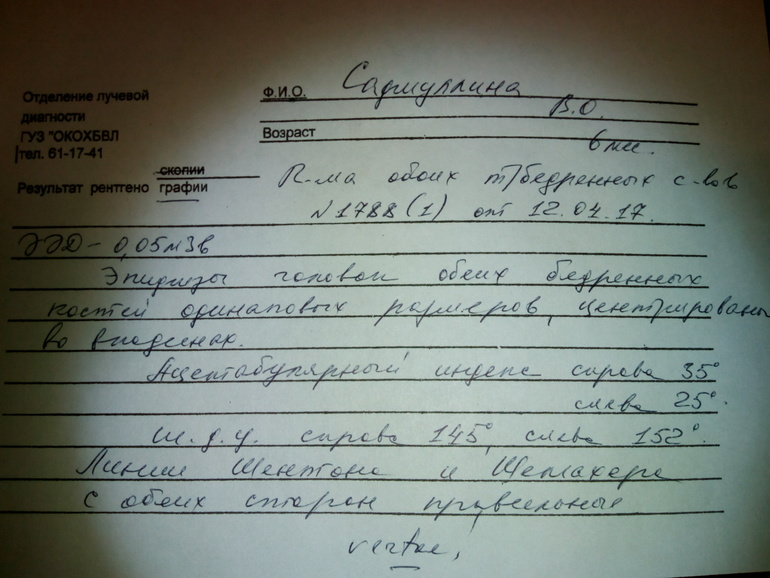 Отделение лучевой
диагности
ГУЗ "ОКОХБВЛ
тел. 61-17-41
Ф.И.О. Садиуллина
В.О.
Возраст 6 мес.
скопии
Результат рентгено графии
R-ма обоих т/бедренных с-вов
№1788(1) от 12.04.17.
ЭЭД - 0,05 мЗв
Эпифизы головок обеих бедренных
костей одинаковых размеров, центрированы
во впадинах.
Ацетабулярный индекс справа 35°
слева 25°.
ш.д.у. справа 145°, слева 152°.
Линии Шентона и
с обеих сторон правильные